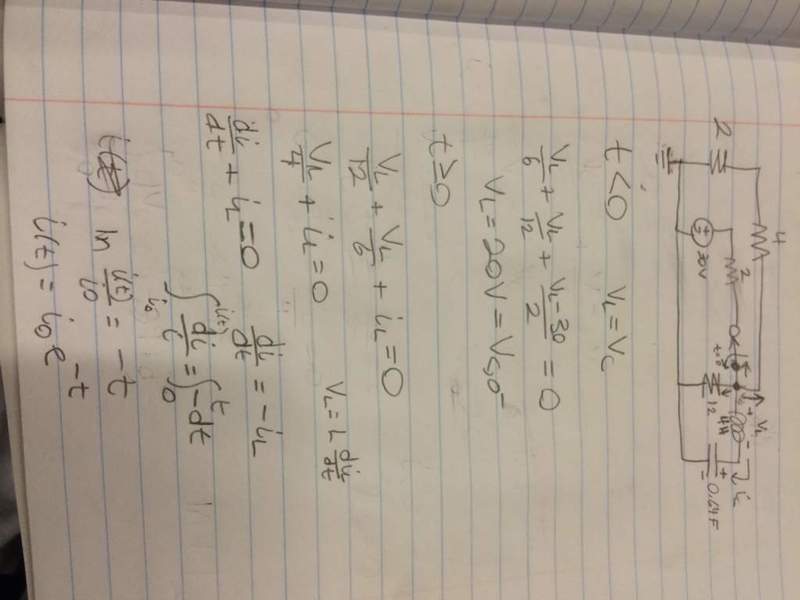 4
2
2
30V
t=0
12
4H
+ VL -
iL
+
-
0.64F
t<0 VL = Vc
VL/6 + VL/12 + (VL-30)/2 = 0
VL = 20V = V5,0-
t≥0
VL/12 + VL/6 + iL = 0
VL/4 + iL = 0 VL = L diL/dt
diL/dt + iL = 0 diL/dt = -iL
∫i0^i(t) di/i = ∫0^t -dt
ln i(t)/i0 = -t
i(t) = i0 e^-t